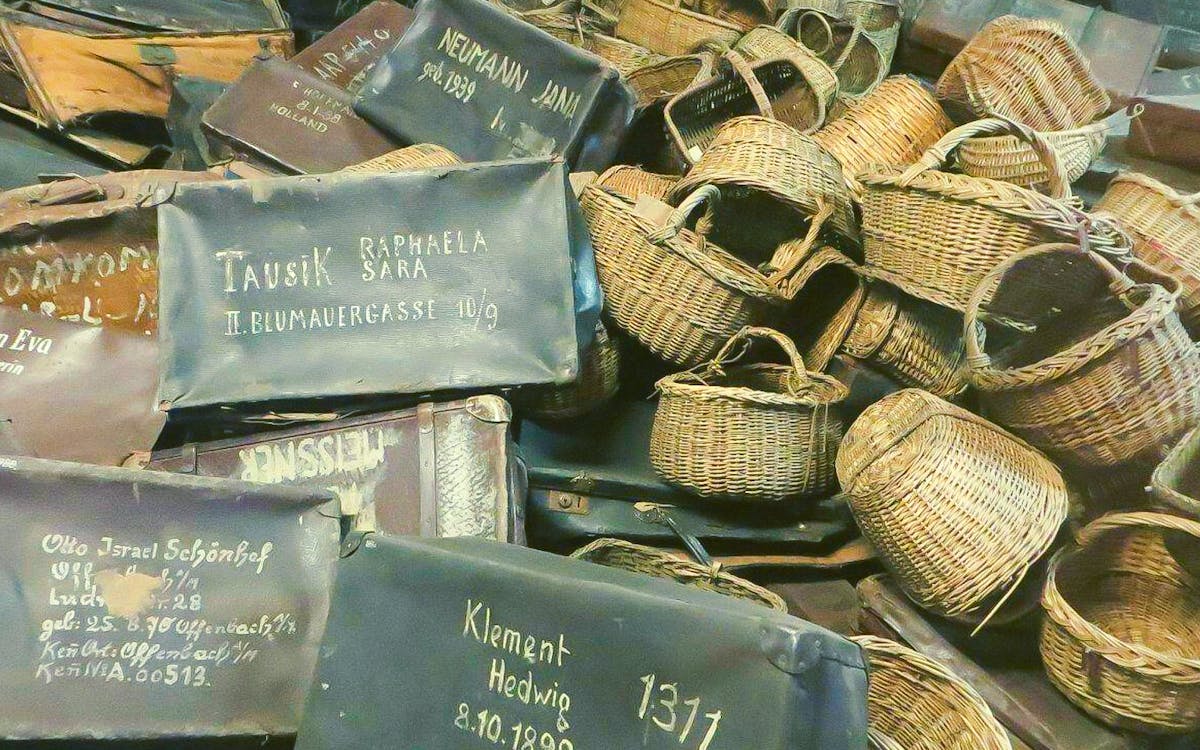 NEUMANN JANA
geb. 1939
8.1-38
HOLLAND
TAUSIK RAPHAELA
SARA
II. BLUMAUERGASSE 10/9
Eva
MEISSNER
Otto Israel Schönhof
geb: 25. 8. 70 Offenbach a/M
Ken Ort: Offenbach a/M
Ken No A.00513.
Klement
Hedwig
8.10.1898
1311